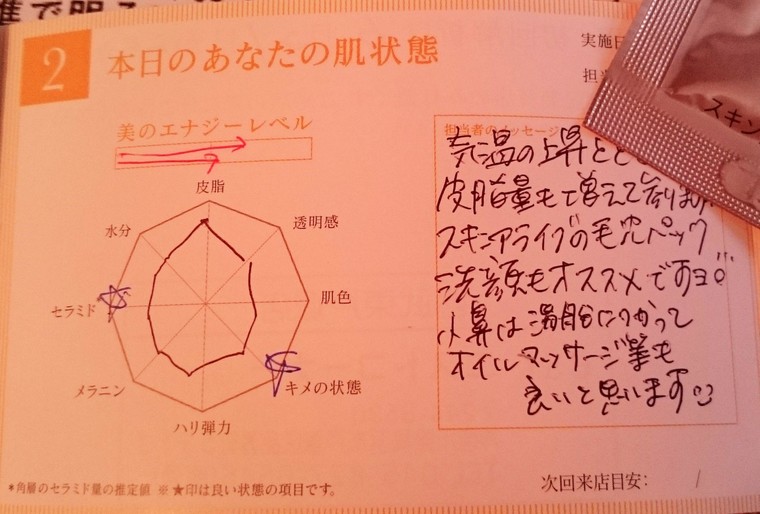 2 本日のあなたの肌状態
実施日
担当
美のエナジーレベル
皮脂
水分
透明感
セラミド
肌色
メラニン
キメの状態
ハリ弾力
担当者のメッセージ
気温の上昇とと
皮脂量も増えて参ります
スキンアライブの毛穴パック
洗顔もオススメですヨ!!
小鼻は湯船につかって
オイルマッサージ等も
良いと思います
*角層のセラミド量の推定値 ※★印は良い状態の項目です。
次回来店目安: /
スキン